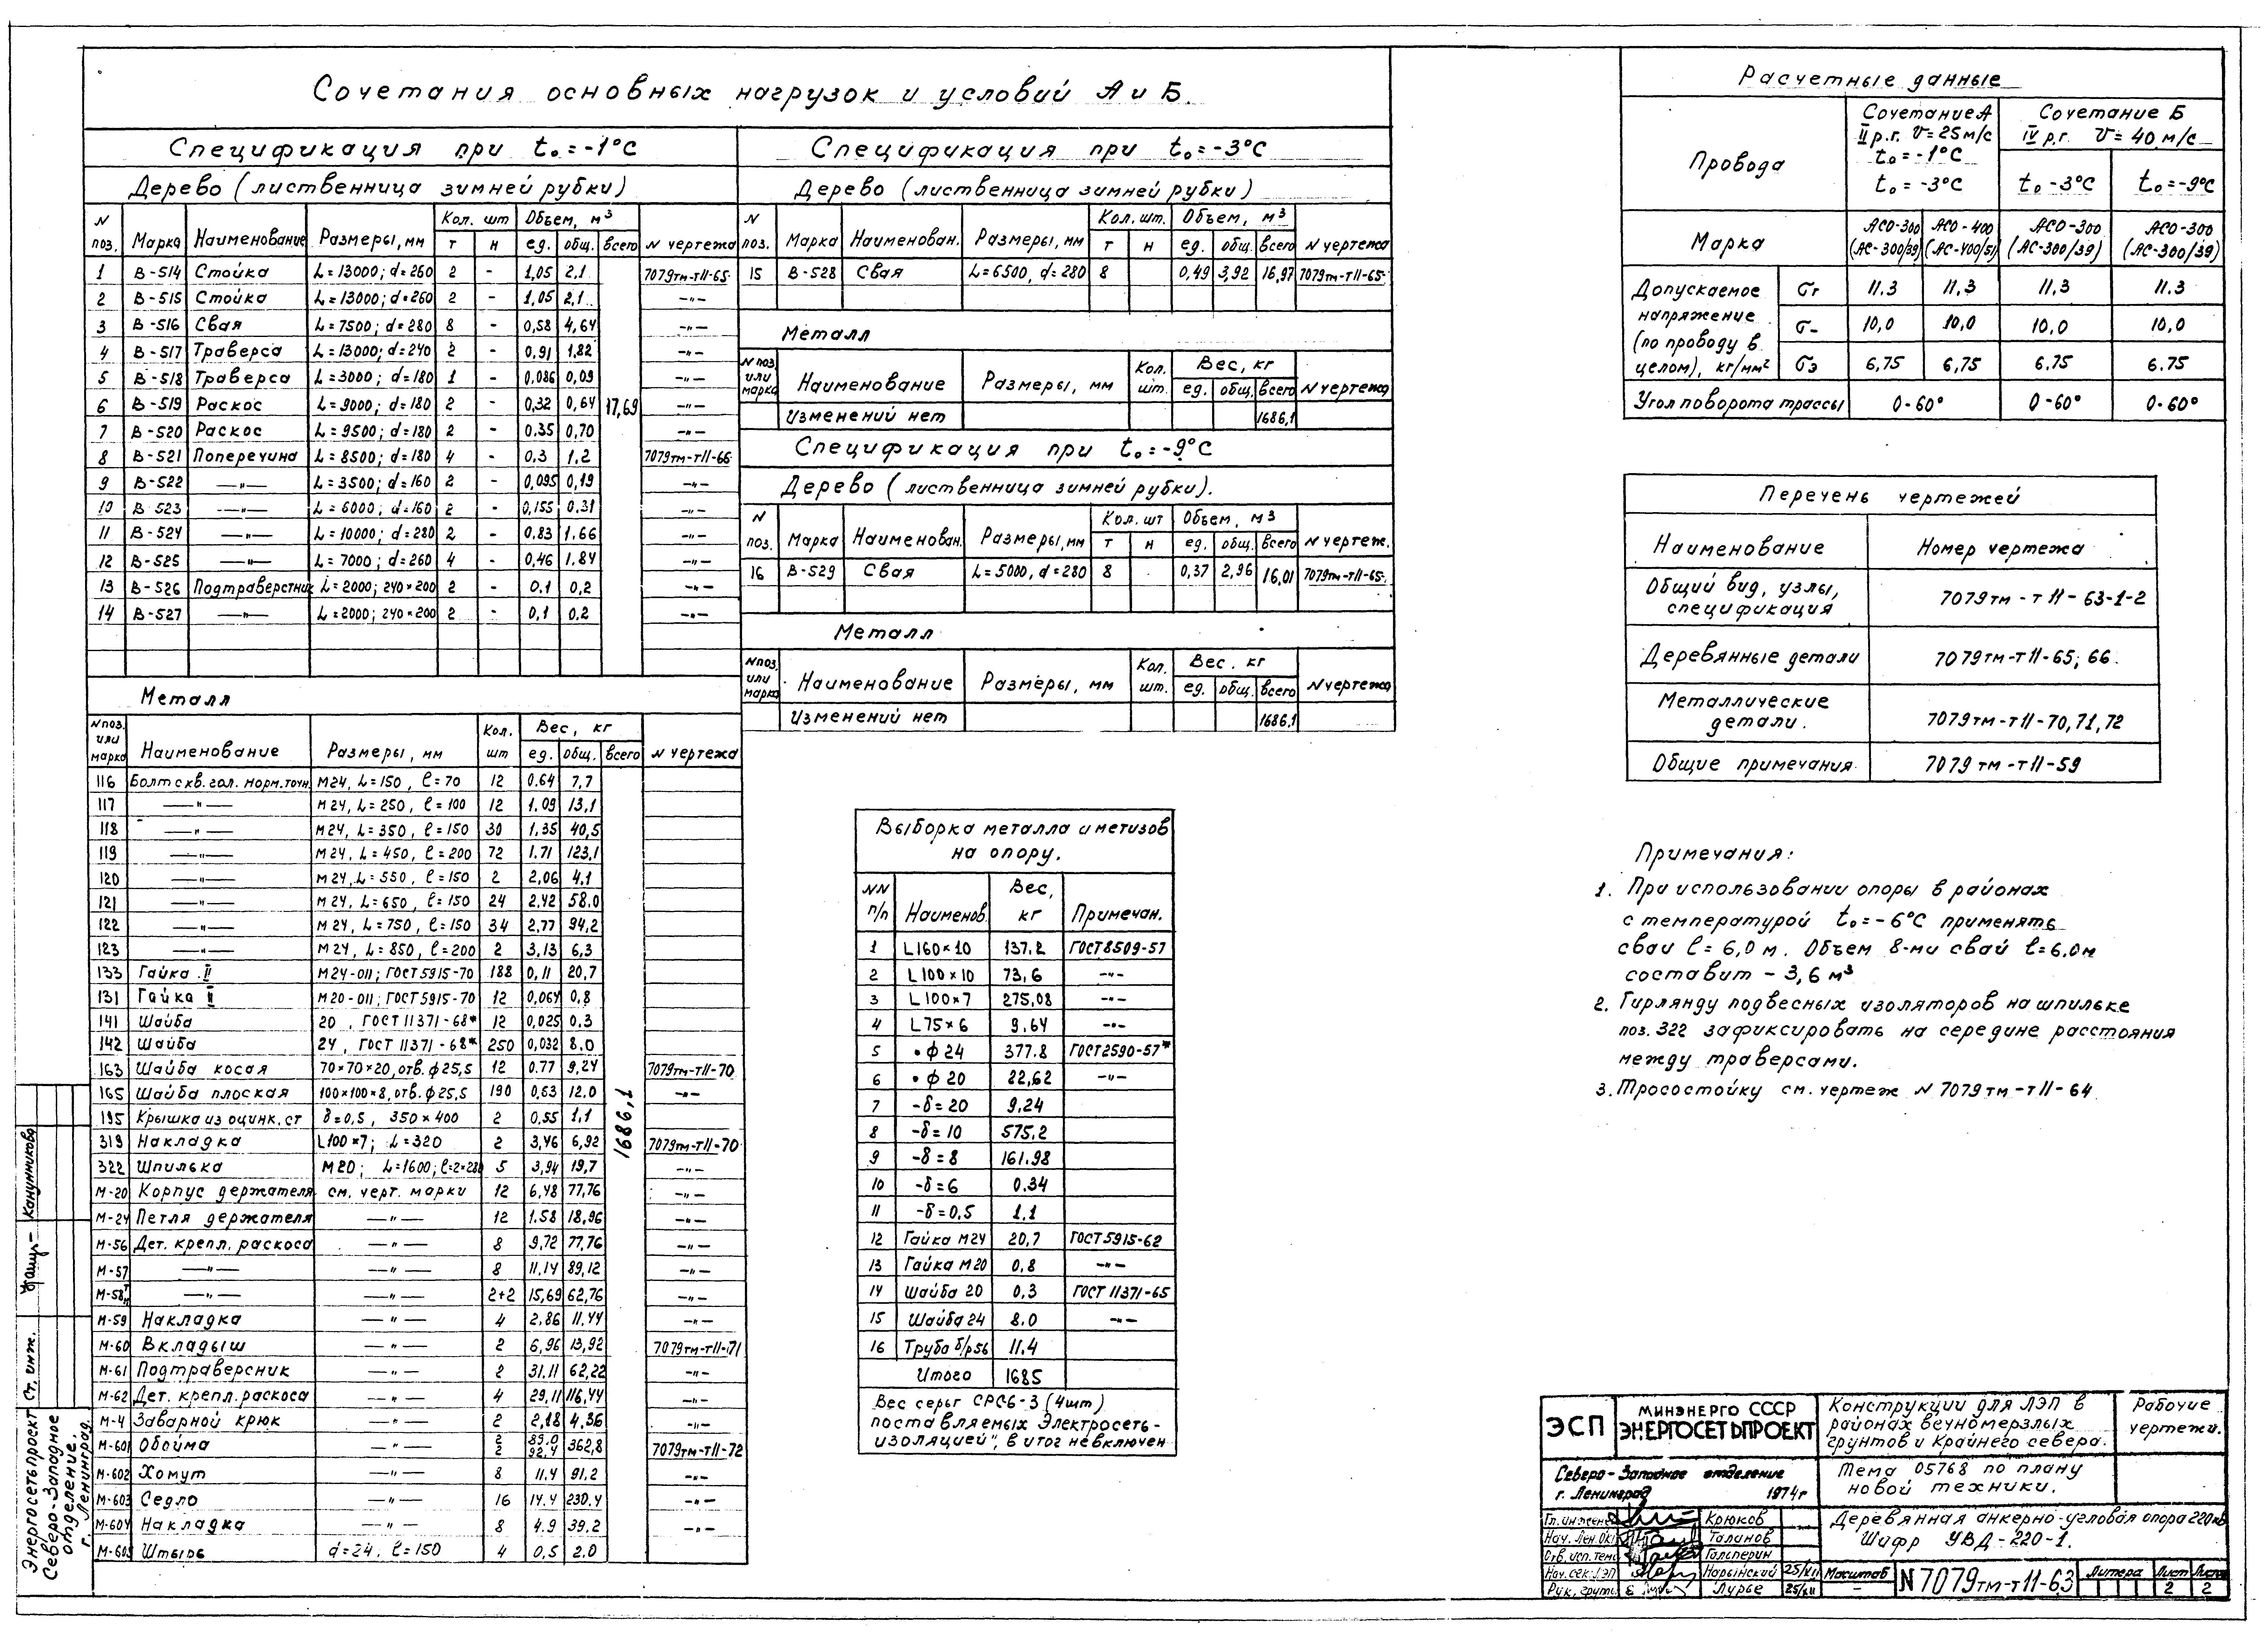 Сочетания основных нагрузок и условий А и Б.
Спецификация при t₀=-1°С
Дерево (лиственница зимней рубки)
N поз. Марка Наименование Размеры, мм Кол. шт т н Объем, м³ ед. общ. всего N чертежа
1 В-514 Стойка L=13000; d=260 2 - 1,05 2,1 7079тм-тII-65
2 В-515 Стойка L=13000; d=260 2 - 1,05 2,1 -"-
3 В-516 Свая L=7500; d=280 8 - 0,58 4,64 -"-
4 В-517 Траверса L=13000; d=240 2 - 0,91 1,82 -"-
5 В-518 Траверса L=3000; d=180 1 - 0,086 0,09 -"-
6 В-519 Раскос L=9000; d=180 2 - 0,32 0,64 17,69 -"-
7 В-520 Раскос L=9500; d=180 2 - 0,35 0,70 -"-
8 В-521 Поперечина L=8500; d=180 4 - 0,3 1,2 7079тм-тII-66
9 В-522 -"- L=3500; d=160 2 - 0,095 0,19 -"-
10 В-523 -"- L=6000; d=160 2 - 0,155 0,31 -"-
11 В-524 -"- L=10000; d=280 2 - 0,83 1,66 -"-
12 В-525 -"- L=7000; d=260 4 - 0,46 1.84 -"-
13 В-526 Подтраверстник L=2000; 240×200 2 - 0.1 0,2 -"-
14 В-527 -"- L=2000; 240×200 2 - 0,1 0.2 -"-
Металл
N поз. или марка Наименование Размеры, мм Кол. шт Вес, кг ед. общ. всего N чертежа
116 Болт скв. гол. норм. точн. М24, L=150, ℓ=70 12 0.64 7,7
117 -"- М24, L=250, ℓ=100 12 1.09 13,1
118 -"- М24, L=350, ℓ=150 30 1,35 40,5
119 -"- М24, L=450, ℓ=200 72 1.71 123,1
120 -"- М24, L=550, ℓ=150 2 2,06 4.1
121 -"- М24, L=650, ℓ=150 24 2.42 58.0
122 -"- М24, L=750, ℓ=150 34 2,77 94,2
123 -"- М24, L=850, ℓ=200 2 3,13 6,3
133 Гайка II М24-011; ГОСТ 5915-70 188 0,11 20,7
131 Гайка II М20-011; ГОСТ 5915-70 12 0,064 0,8
141 Шайба 20, ГОСТ 11371-68* 12 0,025 0.3
142 Шайба 24, ГОСТ 11371-68* 250 0,032 8.0
163 Шайба косая 70×70×20, отв. ф25,5 12 0.77 9,24 7079тм-тII-70
165 Шайба плоская 100×100×8, отв. ф25,5 190 0,63 12.0 -"-
195 Крышка из оцинк. ст δ=0,5, 350×400 2 0,55 1,1
319 Накладка L100×7; L=320 2 3,46 6,92 7079тм-тII-70
322 Шпилька М20; L=1600; ℓ=2×280 5 3,94 19,7 -"-
М-20 Корпус держателя см. черт. марки 12 6,48 77,76 -"-
М-24 Петля держателя -"- 12 1.58 18,96 -"-
М-56 Дет. крепл. раскоса -"- 8 9,72 77,76 -"-
М-57 -"- -"- 8 11,14 89,12 -"-
М-58 т н -"- -"- 2+2 15,69 62,76 -"-
М-59 Накладка -"- 4 2.86 11,44 -"-
М-60 Вкладыш -"- 2 6,96 13,92 7079тм-тII-71
М-61 Подтраверсник -"- 2 31.11 62,22 -"-
М-62 Дет. крепл. раскоса -"- 4 29,11 116,44 -"-
М-4 Заварной крюк -"- 2 2,18 4.36 -"-
М-601 Обойма -"- 2 2 89.0 92.4 362,8 7079тм-тII-72
М-602 Хомут -"- 8 11.4 91.2 -"-
М-603 Седло -"- 16 14.4 230.4 -"-
М-604 Накладка 8 4.9 39.2 -"-
М-605 Штырь d=24, ℓ=150 4 0,5 2.0
1686,1
Спецификация при t₀=-3°С
Дерево (лиственница зимней рубки)
N поз. Марка Наименован. Размеры, мм Кол. шт. т н Объем, м³ ед. общ. всего N чертежа
15 В-528 Свая L=6500, d=280 8 0,49 3,92 16,97 7079тм-тII-65
Металл
N поз или марка Наименование Размеры, мм Кол. шт. Вес, кг ед. общ. всего N чертежа
Изменений нет 1686,1
Спецификация при t₀=-9°С
Дерево (лиственница зимней рубки).
N поз. Марка Наименован. Размеры, мм Кол. шт т н Объем, м³ ед. общ. всего N чертеж.
16 В-529 Свая L=5000, d=280 8 0,37 2,96 16,01 7079тм-тII-65
Металл
N поз. или марка Наименование Размеры, мм Кол. шт. Вес, кг ед. общ. всего N чертежа
Изменений нет 1686,1
Выборка металла и метизов
на опору.
NN п/п Наименов. Вес, кг Примечан.
1 L160×10 137.2 ГОСТ 8509-57
2 L100×10 73,6 -"-
3 L100×7 275,08 -"-
4 L75×6 9.64 -"-
5 • ф 24 377.8 ГОСТ 2590-57*
6 • ф 20 22,62 -"-
7 -δ=20 9,24
8 -δ=10 575.2
9 -δ=8 161.98
10 -δ=6 0.34
11 -δ=0.5 1.1
12 Гайка М24 20,7 ГОСТ 5915-62
13 Гайка М20 0,8 -"-
14 Шайба 20 0,3 ГОСТ 11371-65
15 Шайба 24 8.0 -"-
16 Труба б/р 56 11.4
Итого 1685
Вес серьг СРС6-3 (4шт)
поставляемых Электросеть-
изоляцией", в итог не включен
Расчетные данные
Провода
Сочетание А
II р.г. v=25м/с
t₀=-1°С
t₀=-3°С
Сочетание Б
IV р.г. v=40 м/с
t₀-3°С t₀=-9°С
Марка АСО-300 (АС-300/39) АСО-400 (АС-400/51) АСО-300 (АС-300/39) АСО-300 (АС-300/39)
Допускаемое напряжение (по проводу в целом), кг/мм²
σг 11.3 11,3 11,3 11.3
σ- 10,0 10,0 10,0 10,0
σэ 6,75 6,75 6.75 6.75
Угол поворота трассы 0-60° 0-60° 0-60°
Перечень чертежей
Наименование Номер чертежа
Общий вид, узлы, спецификация 7079тм-тII-63-1-2
Деревянные детали 7079тм-тII-65; 66.
Металлические детали. 7079тм-тII-70,71,72
Общие примечания 7079тм-тII-59
Примечания:
1. При использовании опоры в районах
с температурой t₀=-6°С применять
сваи ℓ=6,0 м. Объем 8-ми свай ℓ=6.0м
составит - 3,6 м³
2. Гирлянду подвесных изоляторов на шпильке
поз. 322 зафиксировать на середине расстояния
между траверсами.
3. Тросостойку см. чертеж N 7079тм-тII-64
ЭСП
МИНЭНЕРГО СССР
ЭНЕРГОСЕТЬПРОЕКТ
Северо-Западное отделение
г. Ленинград 1974г
Конструкции для ЛЭП в
районах вечномерзлых
грунтов и Крайнего севера.
Рабочие
чертежи.
Тема 05768 по плану
новой техники.
Деревянная анкерно-угловая опора 220кв
Шифр УВД-220-1.
Гл. инженер Крюков
Нач. Лен. ОКП Таланов
Отв. исп. темы Гальперин
Нач. сек. ЛЭП Нарынский 25/XII
Рук. групп. Лурье 25/XII
Масштаб
-
N 7079тм-тII-63
Литера Лист Листов
2 2
Энергосетьпроект
Северо-Западное
отделение.
г. Ленинград.
Ст. инж.
Канунникова